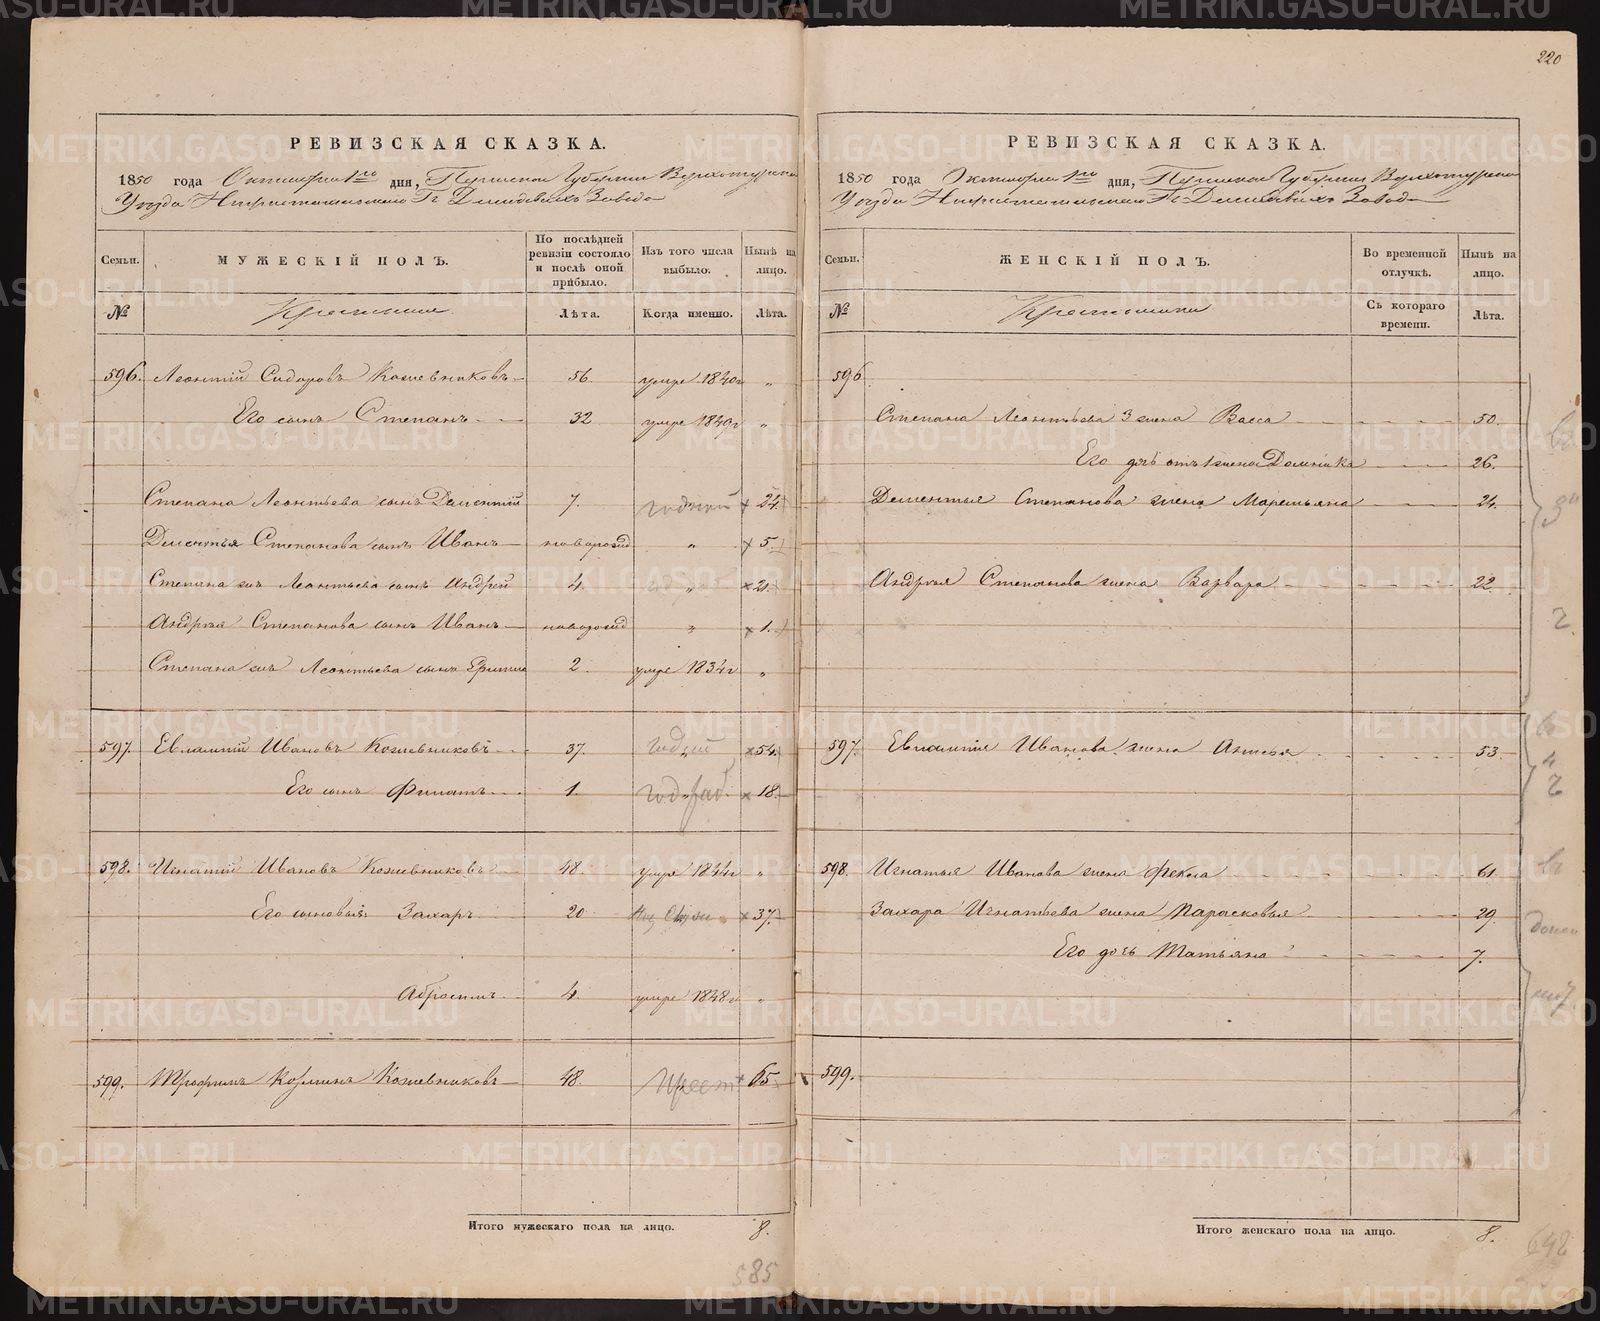 220
РЕВИЗСКАЯ СКАЗКА.
1850 года Октября 1го дня, Пермской Губернии Верхотурскаго
Уезда Нижнетагильскаго Гг Демидовыхъ Завода
Семьи.
МУЖЕСКІЙ ПОЛЪ.
По послѣдней ревизіи состояло и послѣ оной прибыло.
Изъ того числа выбыло.
Нынѣ на лицо.
№
Крестьяне
Лѣта.
Когда именно.
Лѣта.
596. Леонтій Сидоровъ Кожевниковъ 56. умре 1840г "
Его сынъ Степанъ 32 умре 1849г "
Степана Леонтьева сынъ Дементій 7. годной × 24.
Дементья Степанова сынъ Иванъ новорожд " × 5.
Степана же Леонтьева сынъ Андрей 4. " × 21.
Андрея Степанова сынъ Иванъ новорожд " × 1.
Степана же Леонтьева сынъ 2. умре 1834г "
597. Евлампій Ивановъ Кожевниковъ 37. × 54.
Его сынъ Филатъ 1. × 18.
598. Игнатій Ивановъ Кожевниковъ 48. умре 1844г "
Его сыновья: Захаръ 20 × 37.
Абросимъ 4. умре 1848г "
599. Трофимъ Козминъ Кожевниковъ 48. 65.
Итого мужескаго пола на лицо. 8.
585
РЕВИЗСКАЯ СКАЗКА.
1850 года Октября 1го дня, Пермской Губернии Верхотурскаго
Уезда Нижнетагильскаго Гг Демидовыхъ Завода
Семьи.
ЖЕНСКІЙ ПОЛЪ.
Во временной отлучкѣ.
Нынѣ на лицо.
№
Крестьянки
Съ котораго времени.
Лѣта.
596
Степана Леонтьева 3 жена Васса 50.
Его дочь отъ 1 жены Домника 26.
Дементья Степанова жена Маремьяна 24.
Андрея Степанова жена Варвара 22.
597. Евлампія Иванова жена 53.
598. Игнатья Иванова жена Фекла 61.
Захара Игнатьева жена Парасковья 29.
Его дочь Татьяна 7.
599.
Итого женскаго пола на лицо. 8.
642
METRIKI.GASO-URAL.RU